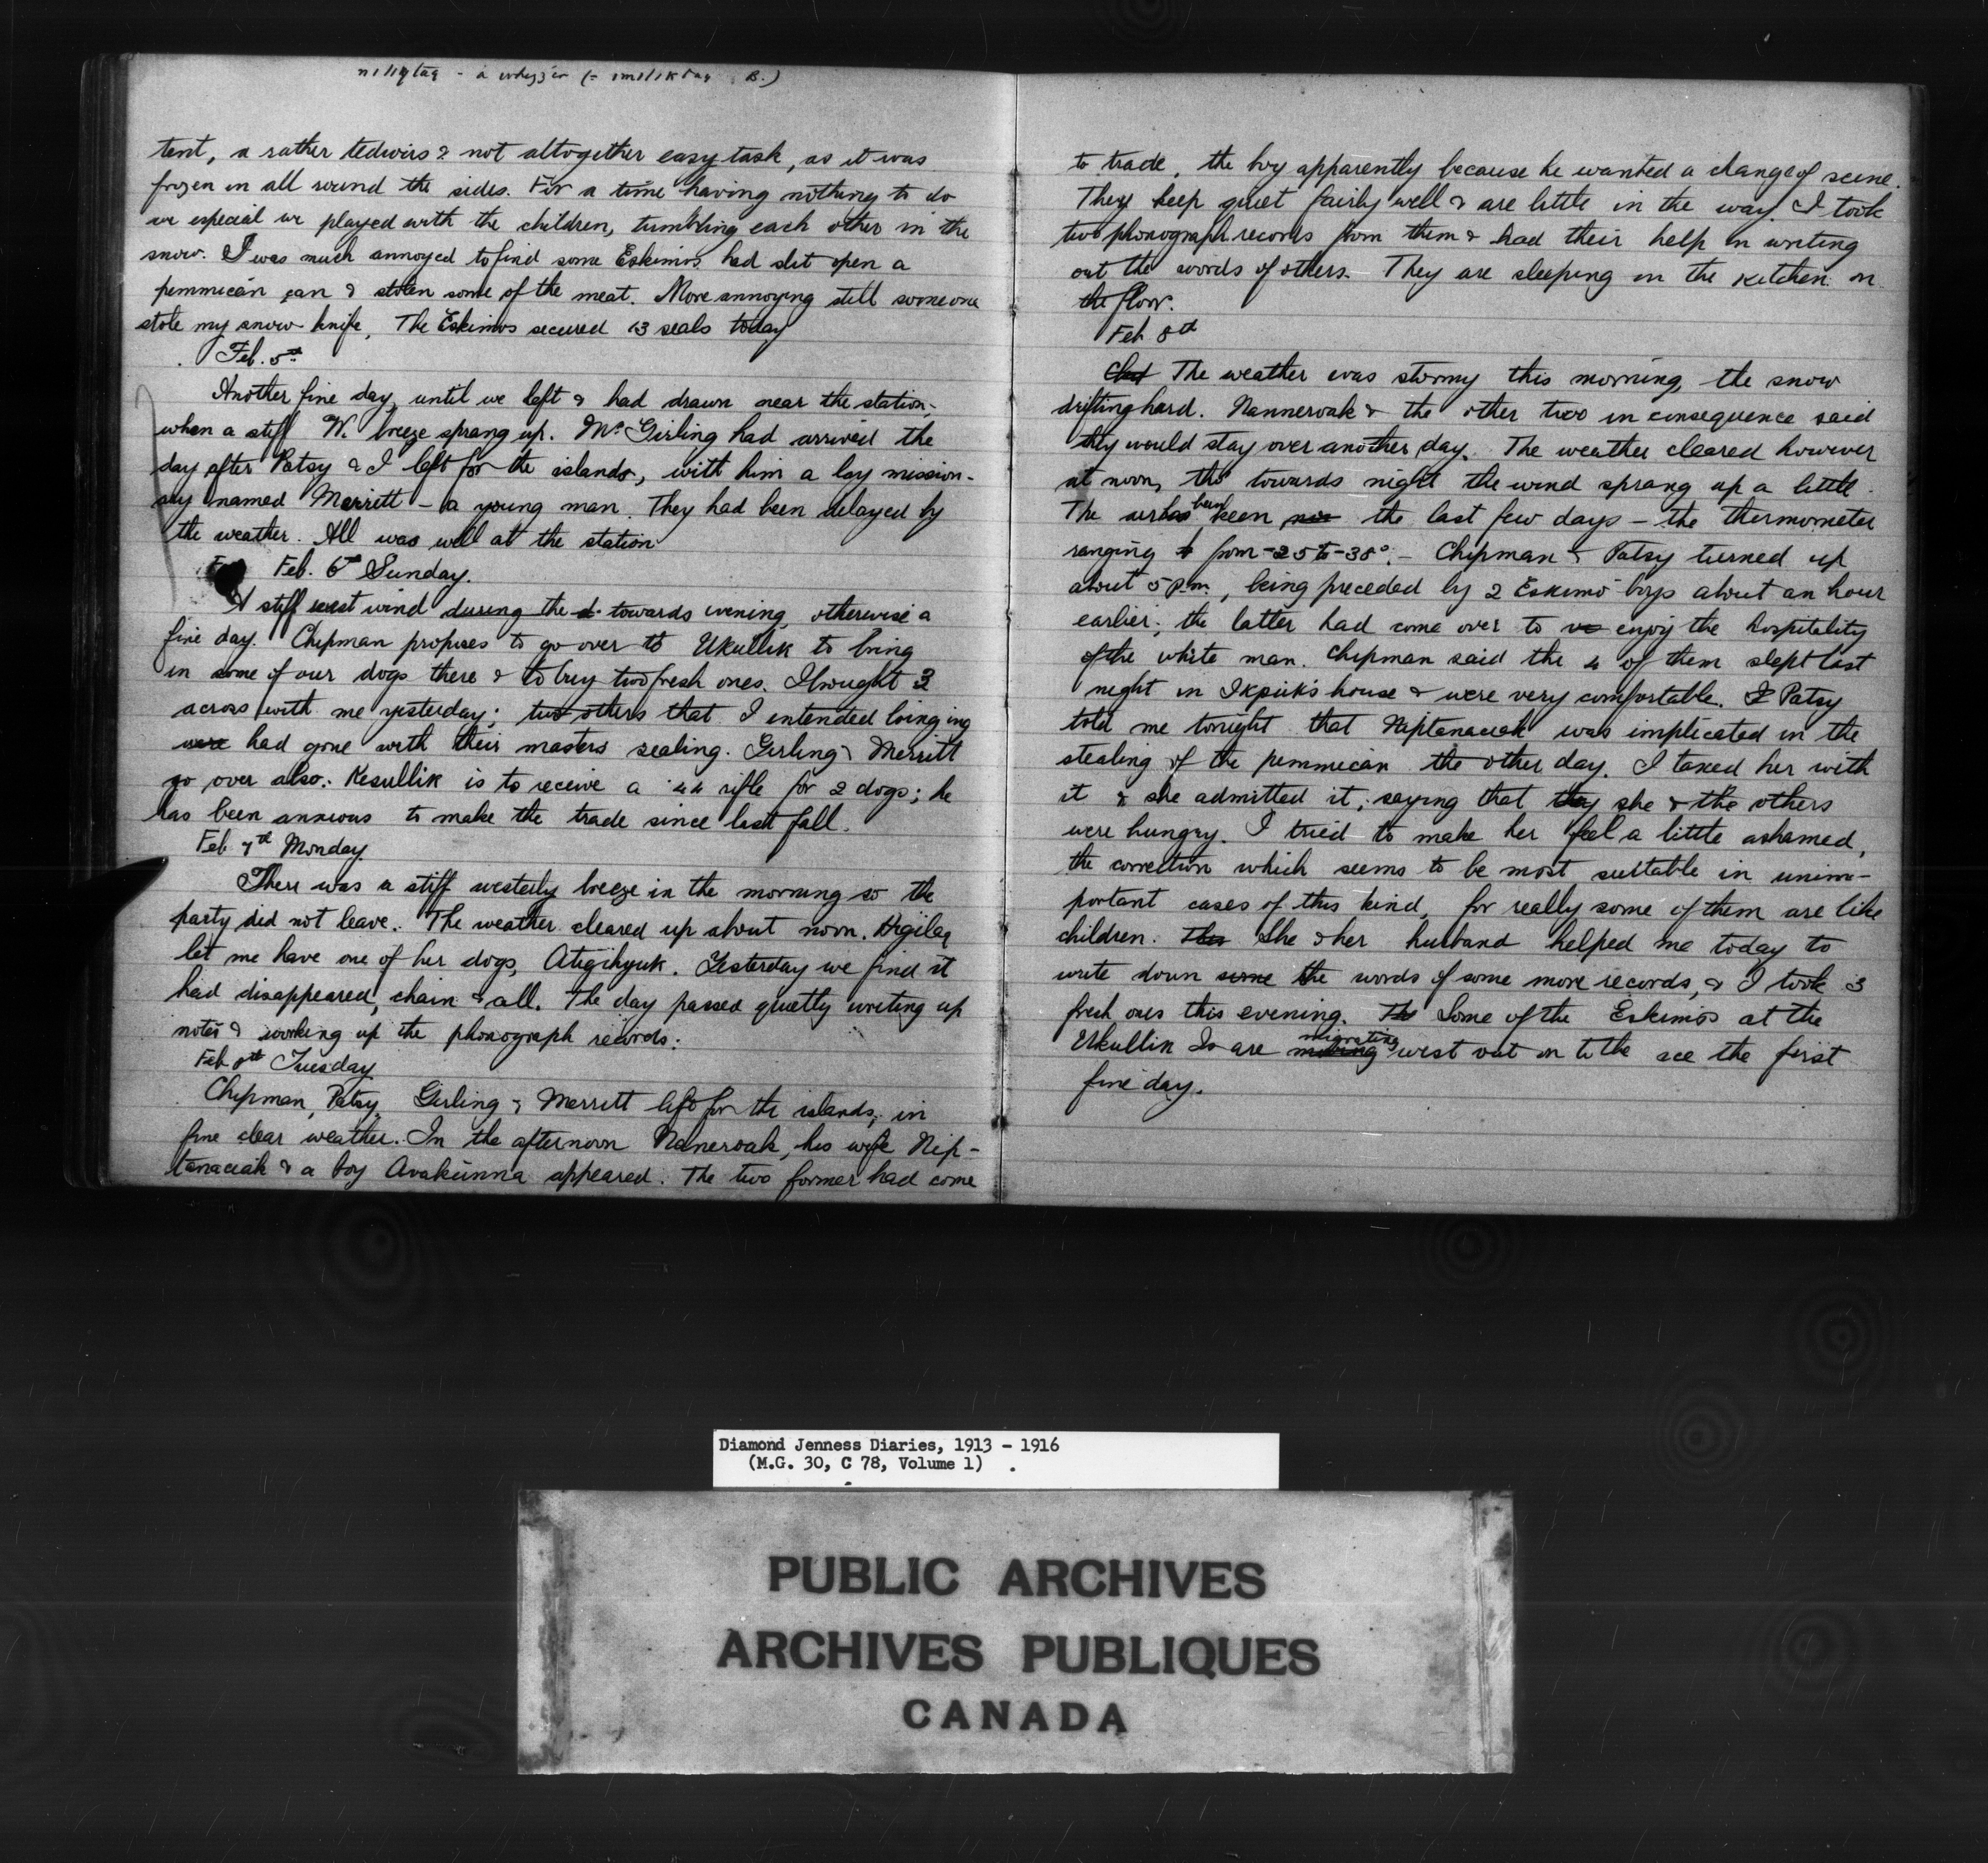 tent, a rather tedious & not altogether easy task, as it was
frozen in all round the sides. For a time having nothing to do
in especial we played with the children, tumbling each other in the
snow. I was much annoyed to find some Eskimos had slit open a
pemmican can & stolen some of the meat. More annoying still someone
stole my snow knife. The Eskimos secured 13 seals today
Feb. 5th
Another fine day, until we left & had drawn near the station,
when a stiff W. breeze sprang up. Mr Girling had arrived the
day after Patsy & I left for the islands, with him a lay mission-
ary named Merritt - a young man. They had been delayed by
the weather. All was well at the station
Feb. 6th Sunday.
A stiff west wind during the d. towards evening, otherwise a
fine day. Chipman proposes to go over to Ukullik to bring
in some of our dogs there & to buy two fresh ones. I brought 3
across with me yesterday; two others that I intended bringing
were had gone with their masters sealing. Girling & Merritt
go over also. Kesullik is to receive a .44 rifle for 2 dogs; he
has been anxious to make the trade since last fall.
Feb 7th Monday
There was a stiff westerly breeze in the morning so the
party did not leave. The weather cleared up about noon.
let me have one of her dogs, Atigihyuk. Yesterday we find it
had disappeared, chain & all. The day passed quietly writing up
notes & working up the phonograph records.
Feb 8th Tuesday
Chipman, Patsy, Girling & Merritt left for the islands, in
fine clear weather. In the afternoon Naneroak, his wife Nip-
tanaciak & a boy Avakunna appeared. The two former had come
to trade, the boy apparently because he wanted a change of scene.
They keep quiet fairly well & are little in the way. I took
two phonograph records from them & had their help in writing
out the words of others. They are sleeping in the kitchen on
the floor.
Feb 8th
The weather was stormy this morning, the snow
drifting hard. Nanneroak & the other two in consequence said
they would stay over another day. The weather cleared however
at noon, tho towards night the wind sprang up a little.
The air has been keen the last few days - the thermometer
ranging from -25 to -38°. - Chipman & Patsy turned up
about 5 p.m., being preceded by 2 Eskimo boys about an hour
earlier; the latter had come over to enjoy the hospitality
of the white man. Chipman said the 4 of them slept last
night in Ikpik's house & were very comfortable. I Patsy
told me tonight that Niptanaciak was implicated in the
stealing of the pemmican the other day. I taxed her with
it & she admitted it, saying that they she & the others
were hungry. I tried to make her feel a little ashamed,
the correction which seems to be most suitable in unim-
portant cases of this kind, for really some of them are like
children. She & her husband helped me today to
write down some the words of some more records, & I took 3
fresh ones this evening. The Some of the Eskimos at the
Ukullik Is are moving migrating west out on to the ice the first
fine day.
Diamond Jenness Diaries, 1913 - 1916
(M.G. 30, C 78, Volume 1)
PUBLIC ARCHIVES
ARCHIVES PUBLIQUES
CANADA